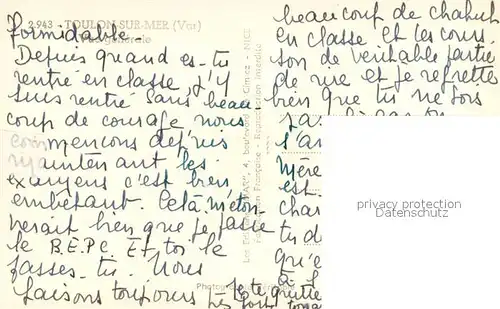 2.943 - TOULON-SUR-MER (Var)
Vue générale
formidable.
Depuis quand es-tu
rentré en classe, j'y
suis rentré sans beau
coup de courage nous
commencons depuis
maintenant les
examens c'est bien
embêtant. Celà m'éton-
nerait bien que je passe
le B.E.P.C. Et toi le
passes-tu. Nous
faisons toujours
beaucoup de chahut
en classe et les cours
son de veritable partie
de rire et je regrette
bien que tu ne sois
s'a
mère
est
char
tu d
qu'e
à
je te quitte
très fort
Les Editions "MAR", 4, boulevard de Cimiez - NICE
Fabrication Française - Reproduction Interdite
Photo
privacy protection
Datenschutz